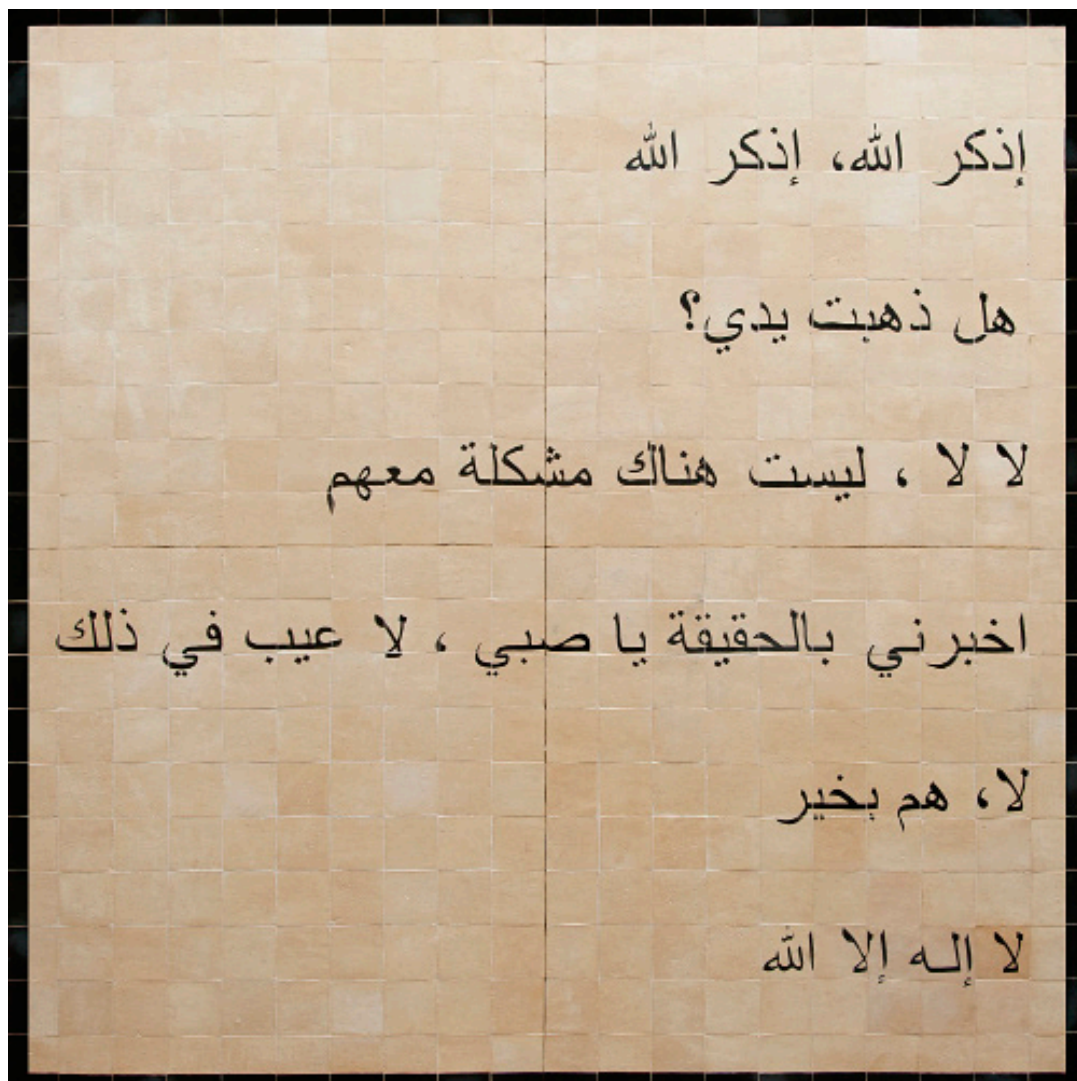 إذكر الله، إذكر الله
هل ذهبت يدي؟
لا لا ، ليست هناك مشكلة معهم
اخبرني بالحقيقة يا صبي ، لا عيب في ذلك
لا، هم بخير
لا إله إلا الله